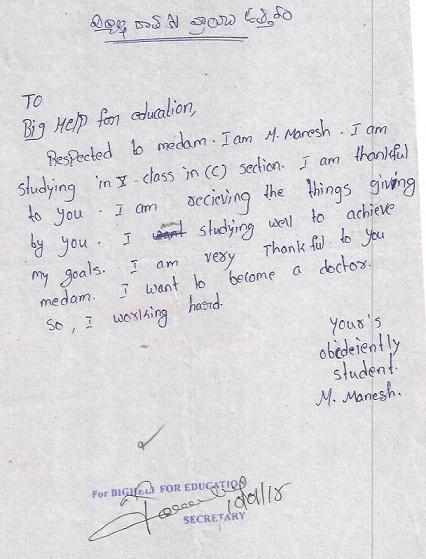 To
Big Help for education,
Respected to medam. I am M. Manesh. I am
studying in X-class in (C) section. I am thankful
to you. I am recieving the things giving
by you. I studying well to achieve
my goals. I am very Thankful to you
medam. I want to become a doctor.
so, I working hard.
Your's
obiedeiently
student.
M. Manesh.
For BIGHELP FOR EDUCATION
SECRETARY